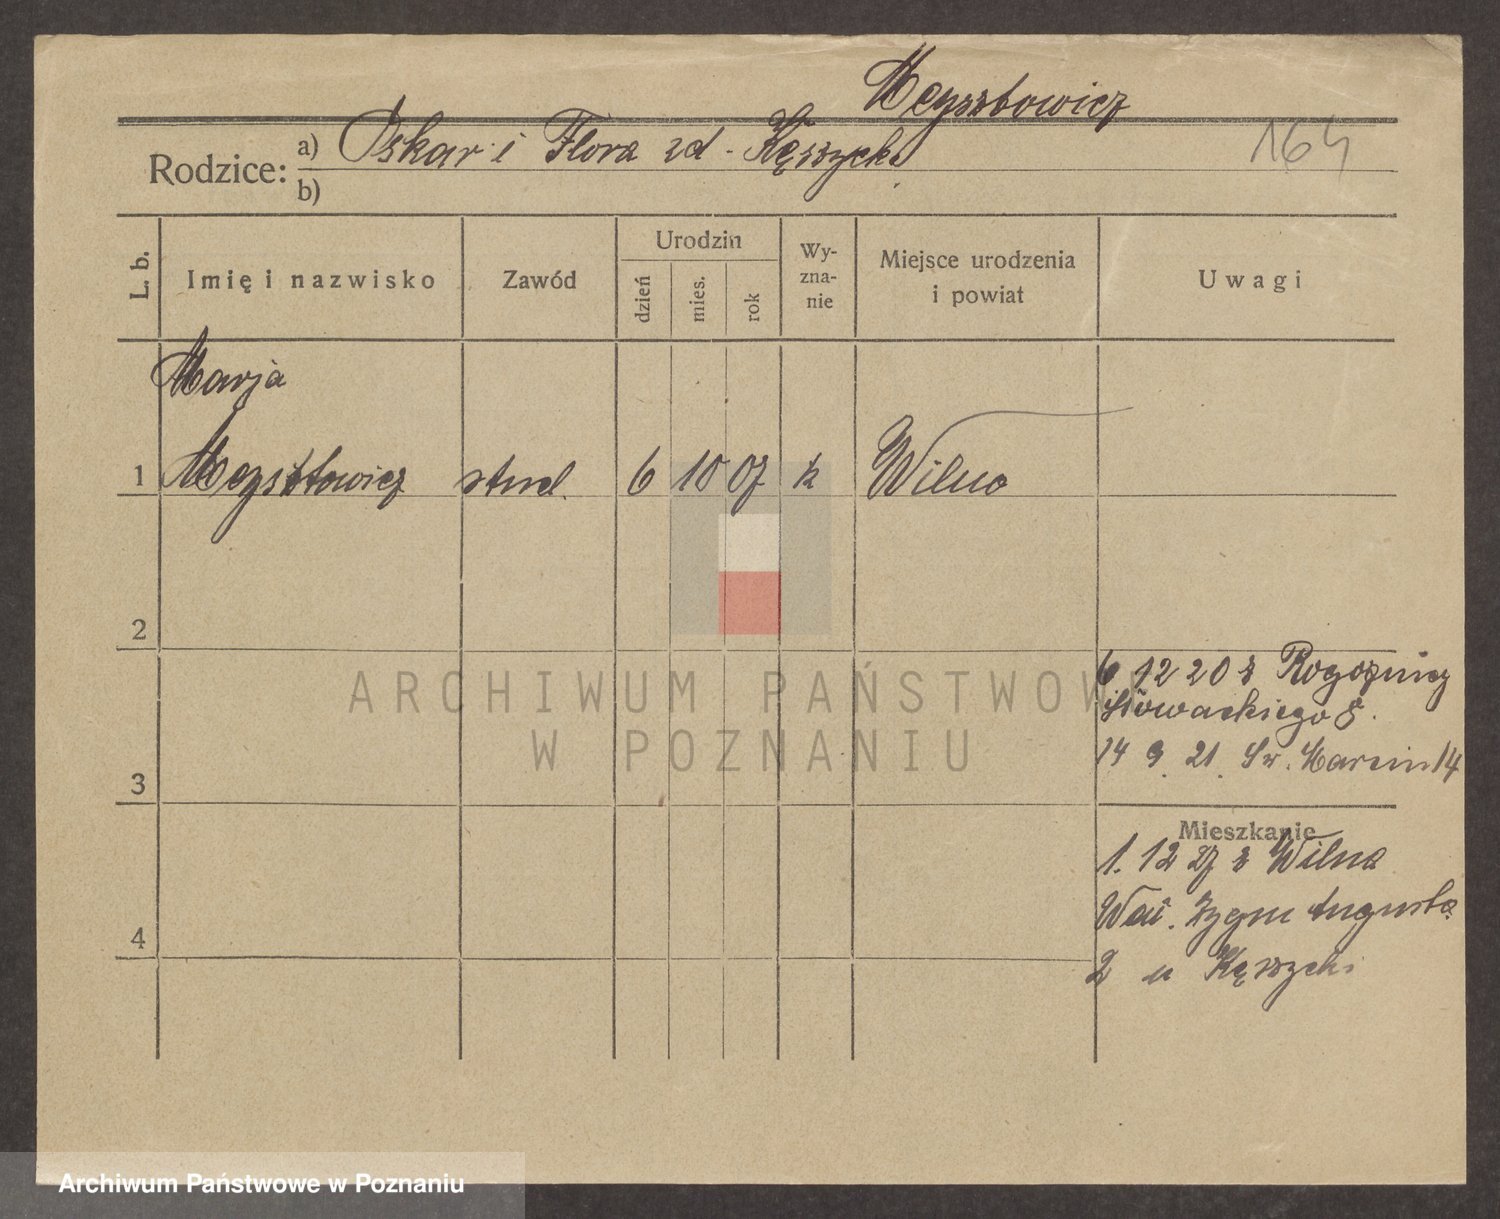 Meysztowicz
Rodzice: a) Oskar i Flora zd. Kęszycka
164
b)
L. b.
Imię i nazwisko
Zawód
Urodzin
dzień
mies.
rok
Wy-
zna-
nie
Miejsce urodzenia
i powiat
Uwagi
Marja
1 Meysztowicz stud. 6 10 07 k Wilno
2
6 12 20 z Rogoźnicy
Słowackiego 8.
14 9. 21. Św. Marcin 14
3
Mieszkanie
1. 12 27 z Wilna
Wał. Zygm Augusta
2 u Kęszycki
4
ARCHIWUM PAŃSTWOWE
W POZNANIU
Archiwum Państwowe w Poznaniu